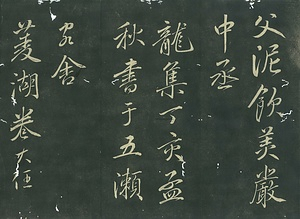 父泥飲美嚴
中丞
龍集丁亥孟
秋書于五瀬
客舍
菱湖卷大任